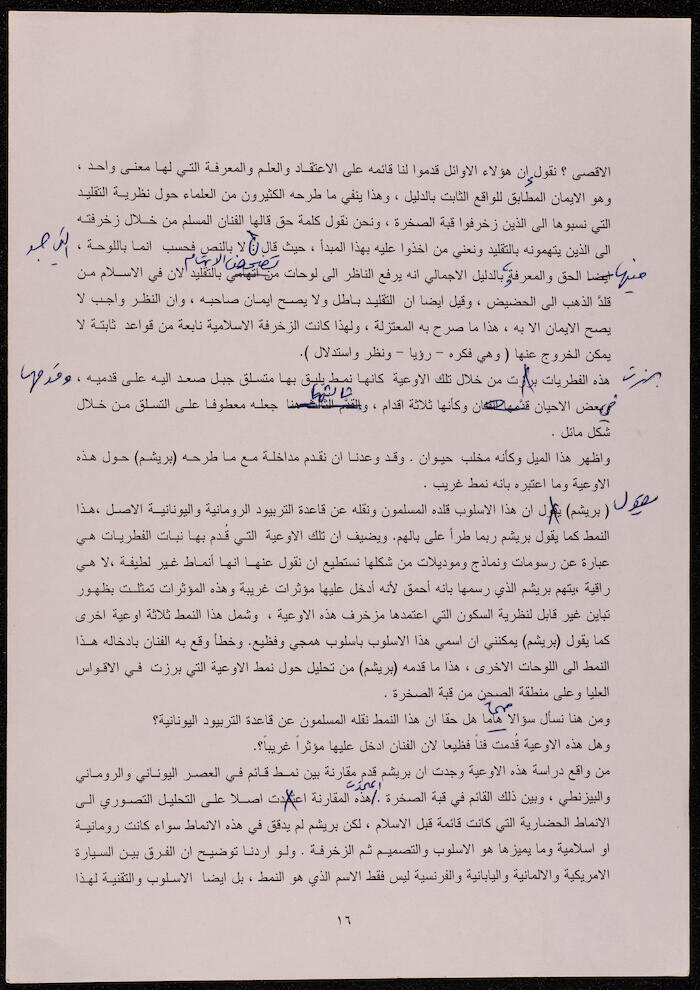 الاقصى ؟ نقول إن هؤلاء الاوائل قدموا لنا قائمه على الاعتقاد والعلم والمعرفة التي لها معنى واحد ،
وهو الايمان المطابق للواقع الثابت بالدليل ، وهذا ينفي ما طرحه الكثيرون من العلماء حول نظرية التقليد
التي نسبوها الى الذين زخرفوا قبة الصخرة ، ونحن نقول كلمة حق قالها الفنان المسلم من خلال زخرفته
الى الذين يتهمونه بالتقليد ونعني من اخذوا عليه بهذا المبدأ ، حيث قال لا بالنص فحسب انما باللوحة ،
ايضا الحق والمعرفة بالدليل الاجمالي انه يرفع الناظر الى لوحات من اتهامي بالتقليد لان في الاسلام من
قلدَّ الذهب الى الحضيض ، وقيل ايضا ان التقليد باطل ولا يصح ايمان صاحبه ، وان النظر واجب لا
يصح الايمان الا به ، هذا ما صرح به المعتزلة ، ولهذا كانت الزخرفة الاسلامية نابعة من قواعد ثابتة لا
يمكن الخروج عنها ( وهي فكره - رؤيا - ونظر واستدلال ).
هذه الفطريات برزت من خلال تلك الاوعية كانها نمط يليق بها متسلق جبل صعد اليه على قدميه ، وقدمها
في بعض الاحيان وكأنها ثلاثة اقدام ، ثالثهما جعله معطوفا على التسلق من خلال
شكل مائل .
واظهر هذا الميل وكأنه مخلب حيوان . وقد وعدنا ان نقدم مداخلة مع ما طرحه (بريشم) حول هذه
الاوعية وما اعتبره بانه نمط غريب .
( بريشم) يقول ان هذا الاسلوب قلده المسلمون ونقله عن قاعدة التربيود الرومانية واليونانية الاصل ،هذا
النمط كما يقول بريشم ربما طرأ على بالهم. ويضيف ان تلك الاوعية التي قُدم بها نبات الفطريات هي
عبارة عن رسومات ونماذج وموديلات من شكلها نستطيع ان نقول عنها انها أنماط غير لطيفة ،لا هي
راقية ،يتهم بريشم الذي رسمها بانه أحمق لأنه أدخل عليها مؤثرات غريبة وهذه المؤثرات تمثلت بظهور
تباين غير قابل لنظرية السكون التي اعتمدها مزخرف هذه الاوعية ، وشمل هذا النمط ثلاثة اوعية اخرى
كما يقول (بريشم) يمكنني ان اسمي هذا الاسلوب باسلوب همجي وفظيع. وخطأ وقع به الفنان بادخاله هذا
النمط الى اللوحات الاخرى ، هذا ما قدمه (بريشم) من تحليل حول نمط الاوعية التي برزت في الاقواس
العليا وعلى منطقة الصحن من قبة الصخرة .
ومن هنا نسأل سؤالا هاما مهما هل حقا ان هذا النمط نقله المسلمون عن قاعدة التربيود اليونانية؟
وهل هذه الاوعية قُدمت فناً فظيعا لان الفنان ادخل عليها مؤثراً غريباً؟.
من واقع دراسة هذه الاوعية وجدت ان بريشم قدم مقارنة بين نمط قائم في العصر اليوناني والروماني
والبيزنطي ، وبين ذلك القائم في قبة الصخرة . هذه المقارنة اعتمدت اصلا على التحليل التصوري الى
الانماط الحضارية التي كانت قائمة قبل الاسلام ، لكن بريشم لم يدقق في هذه الانماط سواء كانت رومانية
او اسلامية وما يميزها هو الاسلوب والتصميم ثم الزخرفة . ولو اردنا توضيح ان الفرق بين السيارة
الامريكية والالمانية واليابانية والفرنسية ليس فقط الاسم الذي هو النمط ، بل ايضا الاسلوب والتقنية لهذا
١٦